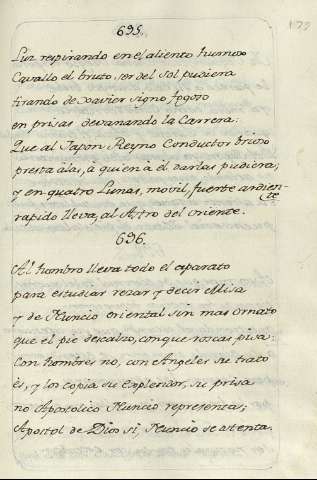 695.
Luz respirando en el aliento humoso
Cavallo el bruto, ser del Sol pudiera
tirando de Xavier signo fogoso
en prisas devanando la Carrera:
Que al Japon Reyno Conductor brioso
presta alas, à quien à èl darlas pudiera;
y en quatro Lunas, movil, fuerte ardien-
te
rapido lleva, al Astro del oriente.
696.
Al hombro lleva todo el aparato
para estudiar rezar y decir Misa
y de Nuncio oriental sin mas ornato
que el pie descalzo, con que roscas pisa:
Con hombres no, con Angeles su trato
ès, y los copia su esplendor, su prisa
no Apostolico Nuncio representa;
Apostol de Dios si, Nuncio se ostenta.